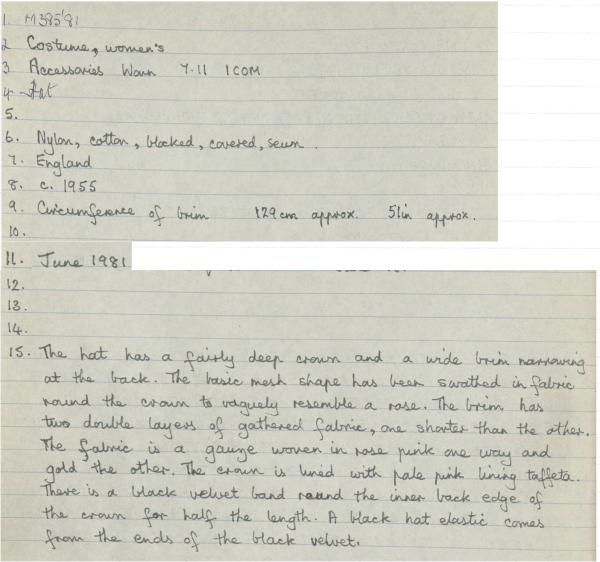 1 M385'81
2 Costume, women's
3 Accessories Worn Y.11 ICOM
4 Hat
5.
6. Nylon, cotton, blocked, covered, sewn.
7. England
8. c. 1955
9. Circumference of brim 129cm approx. 51in approx.
10.
11. June 1981
12.
13.
14.
15. The hat has a fairly deep crown and a wide brim narrowing
at the back. The basic mesh shape has been swathed in fabric
round the crown to vaguely resemble a rose. The brim has
two double layers of gathered fabric, one shorter than the other.
The fabric is a gauze woven in rose pink one way and
gold the other. The crown is lined with pale pink lining taffeta.
There is a black velvet band round the inner back edge of
the crown for half the length. A black hat elastic comes
from the ends of the black velvet.